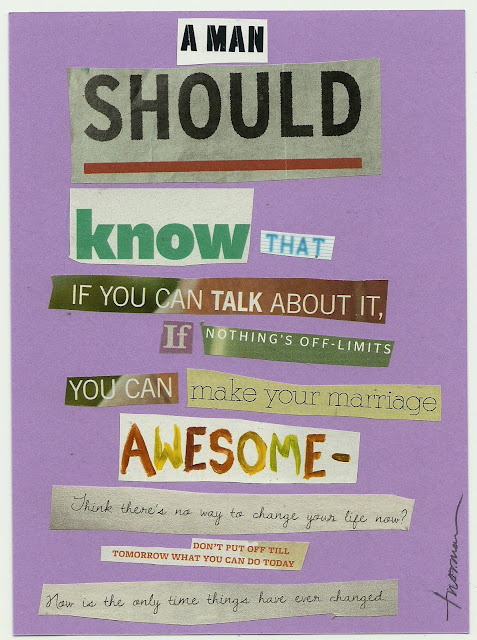 A MAN
SHOULD
know THAT
IF YOU CAN TALK ABOUT IT,
If NOTHING'S OFF-LIMITS
YOU CAN make your marriage
AWESOME-
Think there's no way to change your life now?
DON'T PUT OFF TILL
TOMORROW WHAT YOU CAN DO TODAY
Now is the only time things have ever changed.